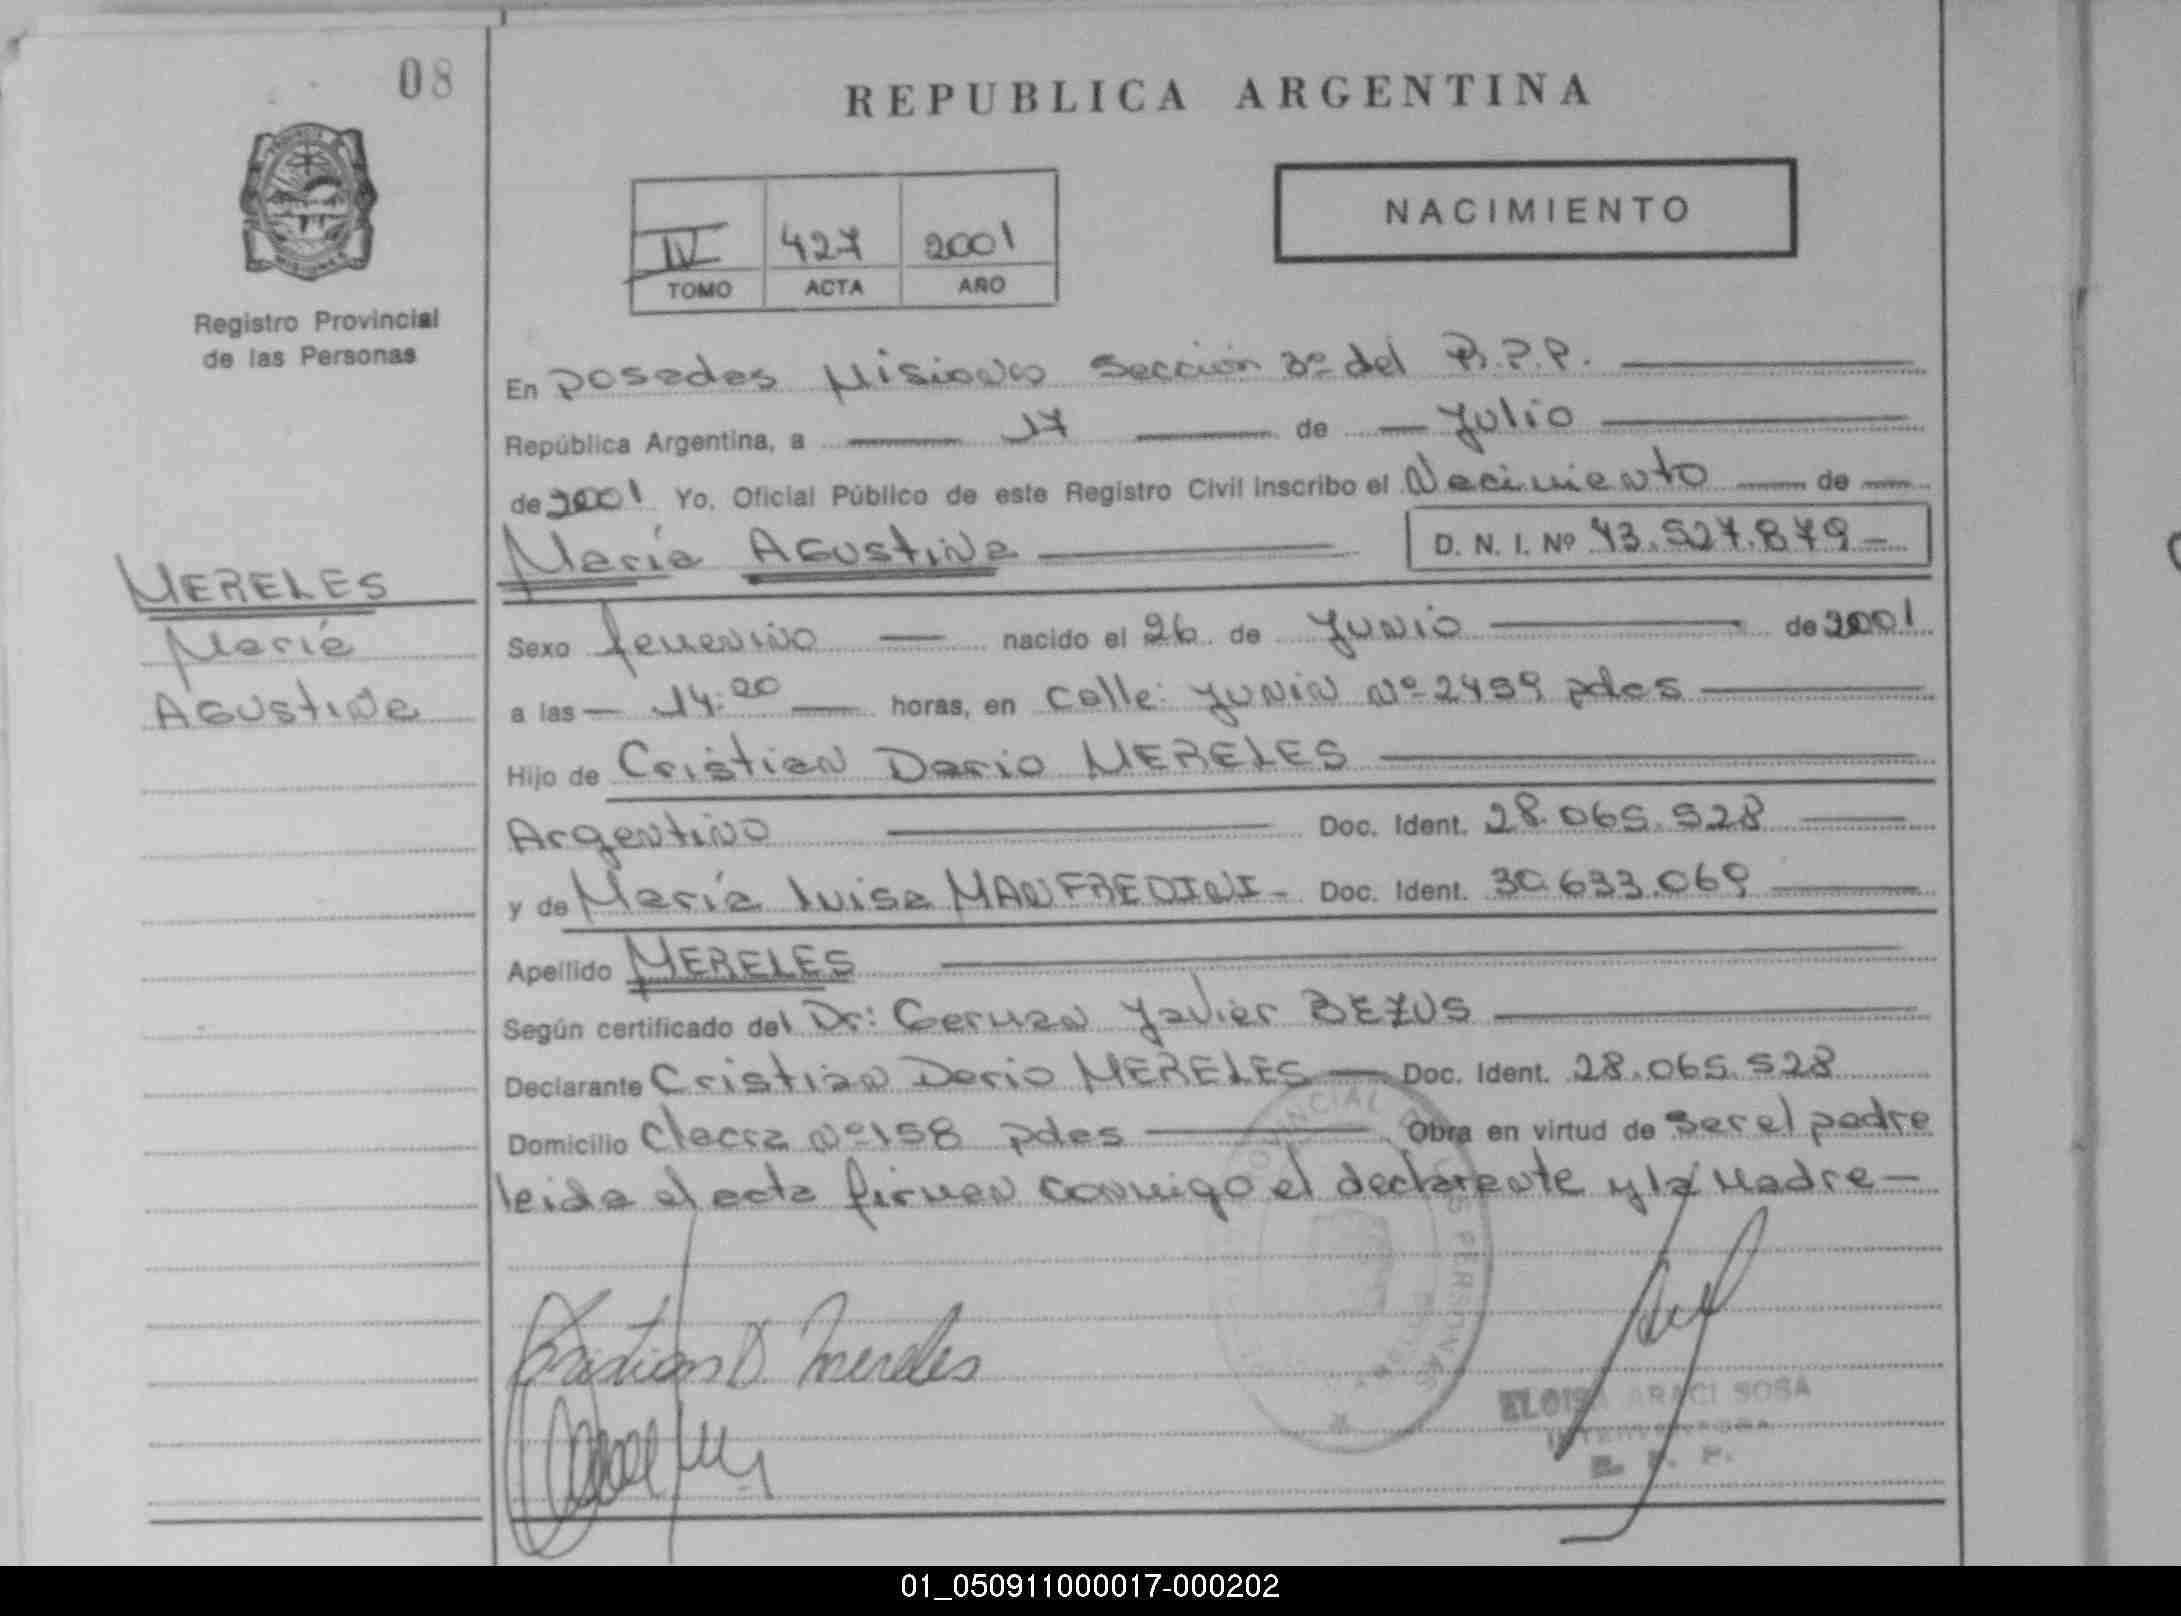 08
REPUBLICA ARGENTINA
NACIMIENTO
IV 427 2001
TOMO ACTA AÑO
Registro Provincial
de las Personas
En Posadas Misiones Sección 3º del R.P.P.
República Argentina, a 17 de Julio
de 2001 Yo, Oficial Público de este Registro Civil inscribo el Nacimiento de
María Agustina D. N. I. Nº 43.527.879
MERELES
María
Agustina
Sexo femenino nacido el 26 de Junio de 2001
a las 14:20 horas, en Calle: Junín Nº 2459 pdas
Hijo de Cristian Dario MERELES
Argentino Doc. Ident. 28.065.528
y de María Luisa MANFREDINI Doc. Ident. 30.633.069
Apellido MERELES
Según certificado del Dr: German Javier BEZUS
Declarante Cristian Dario MERELES Doc. Ident. 28.065.528
Domicilio Chacra Nº 158 pdas Obra en virtud de ser el padre
leida el acta firman conmigo el declarante y la madre
Cristian D. Mereles
ELOISA ARACI SOSA
01_050911000017-000202